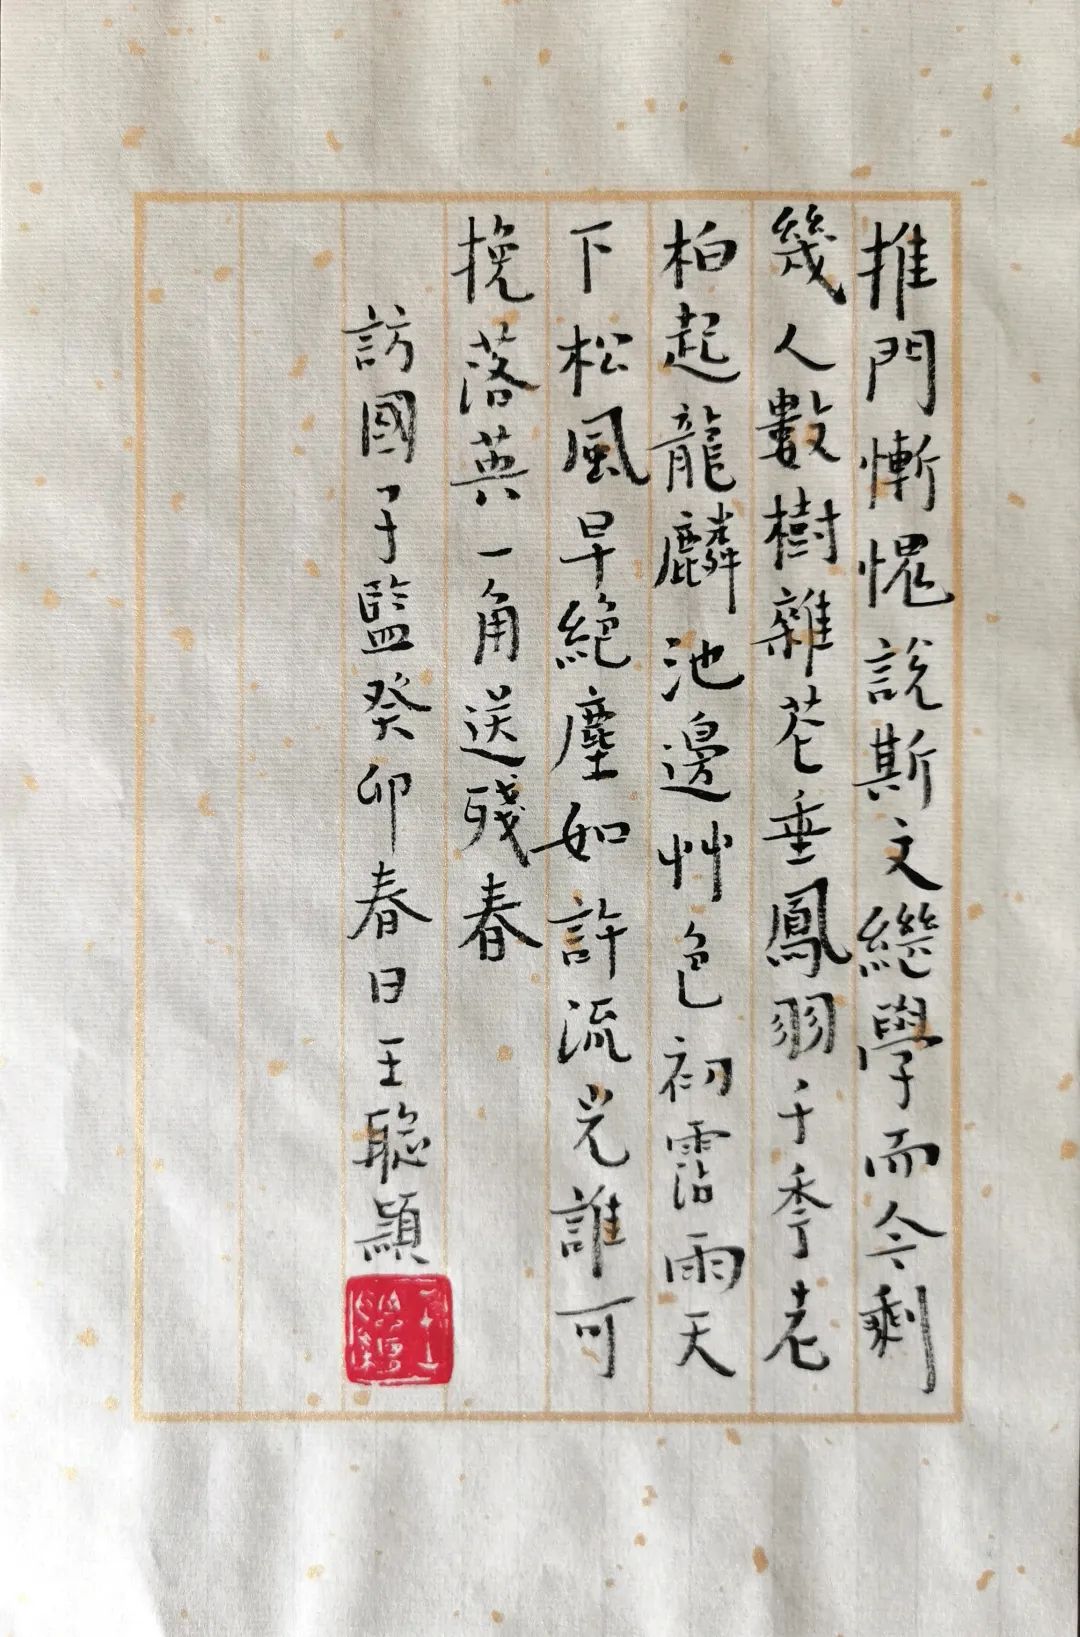 推門慚愧說斯文繼學而今剩
幾人數樹雜花垂鳳羽千秊老
柏起龍麟池邊艸色初霑雨天
下松風早絕塵如許流光誰可
挽落英一角送殘春
訪國子監癸卯春日王聰穎